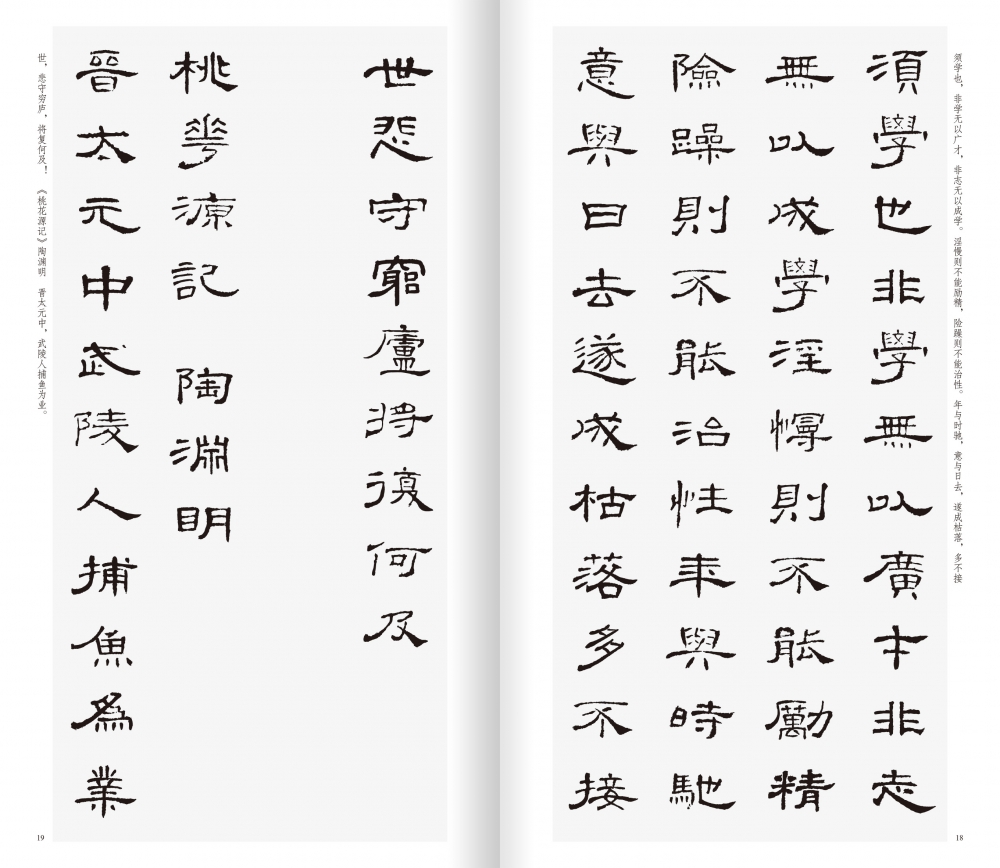 须学也，非学无以广才，非志无以成学。淫慢则不能励精，险躁则不能治性。年与时驰，意与日去，遂成枯落，多不接
須學也非學無以廣才非志
無以成學淫慢則不能勵精
險躁則不能治性年與時馳
意與日去遂成枯落多不接
18
世悲守窮廬將復何及
桃花源記 陶淵明
晉太元中武陵人捕魚為業
世，悲守穷庐，将复何及！《桃花源记》陶渊明 晋太元中，武陵人捕鱼为业。
19